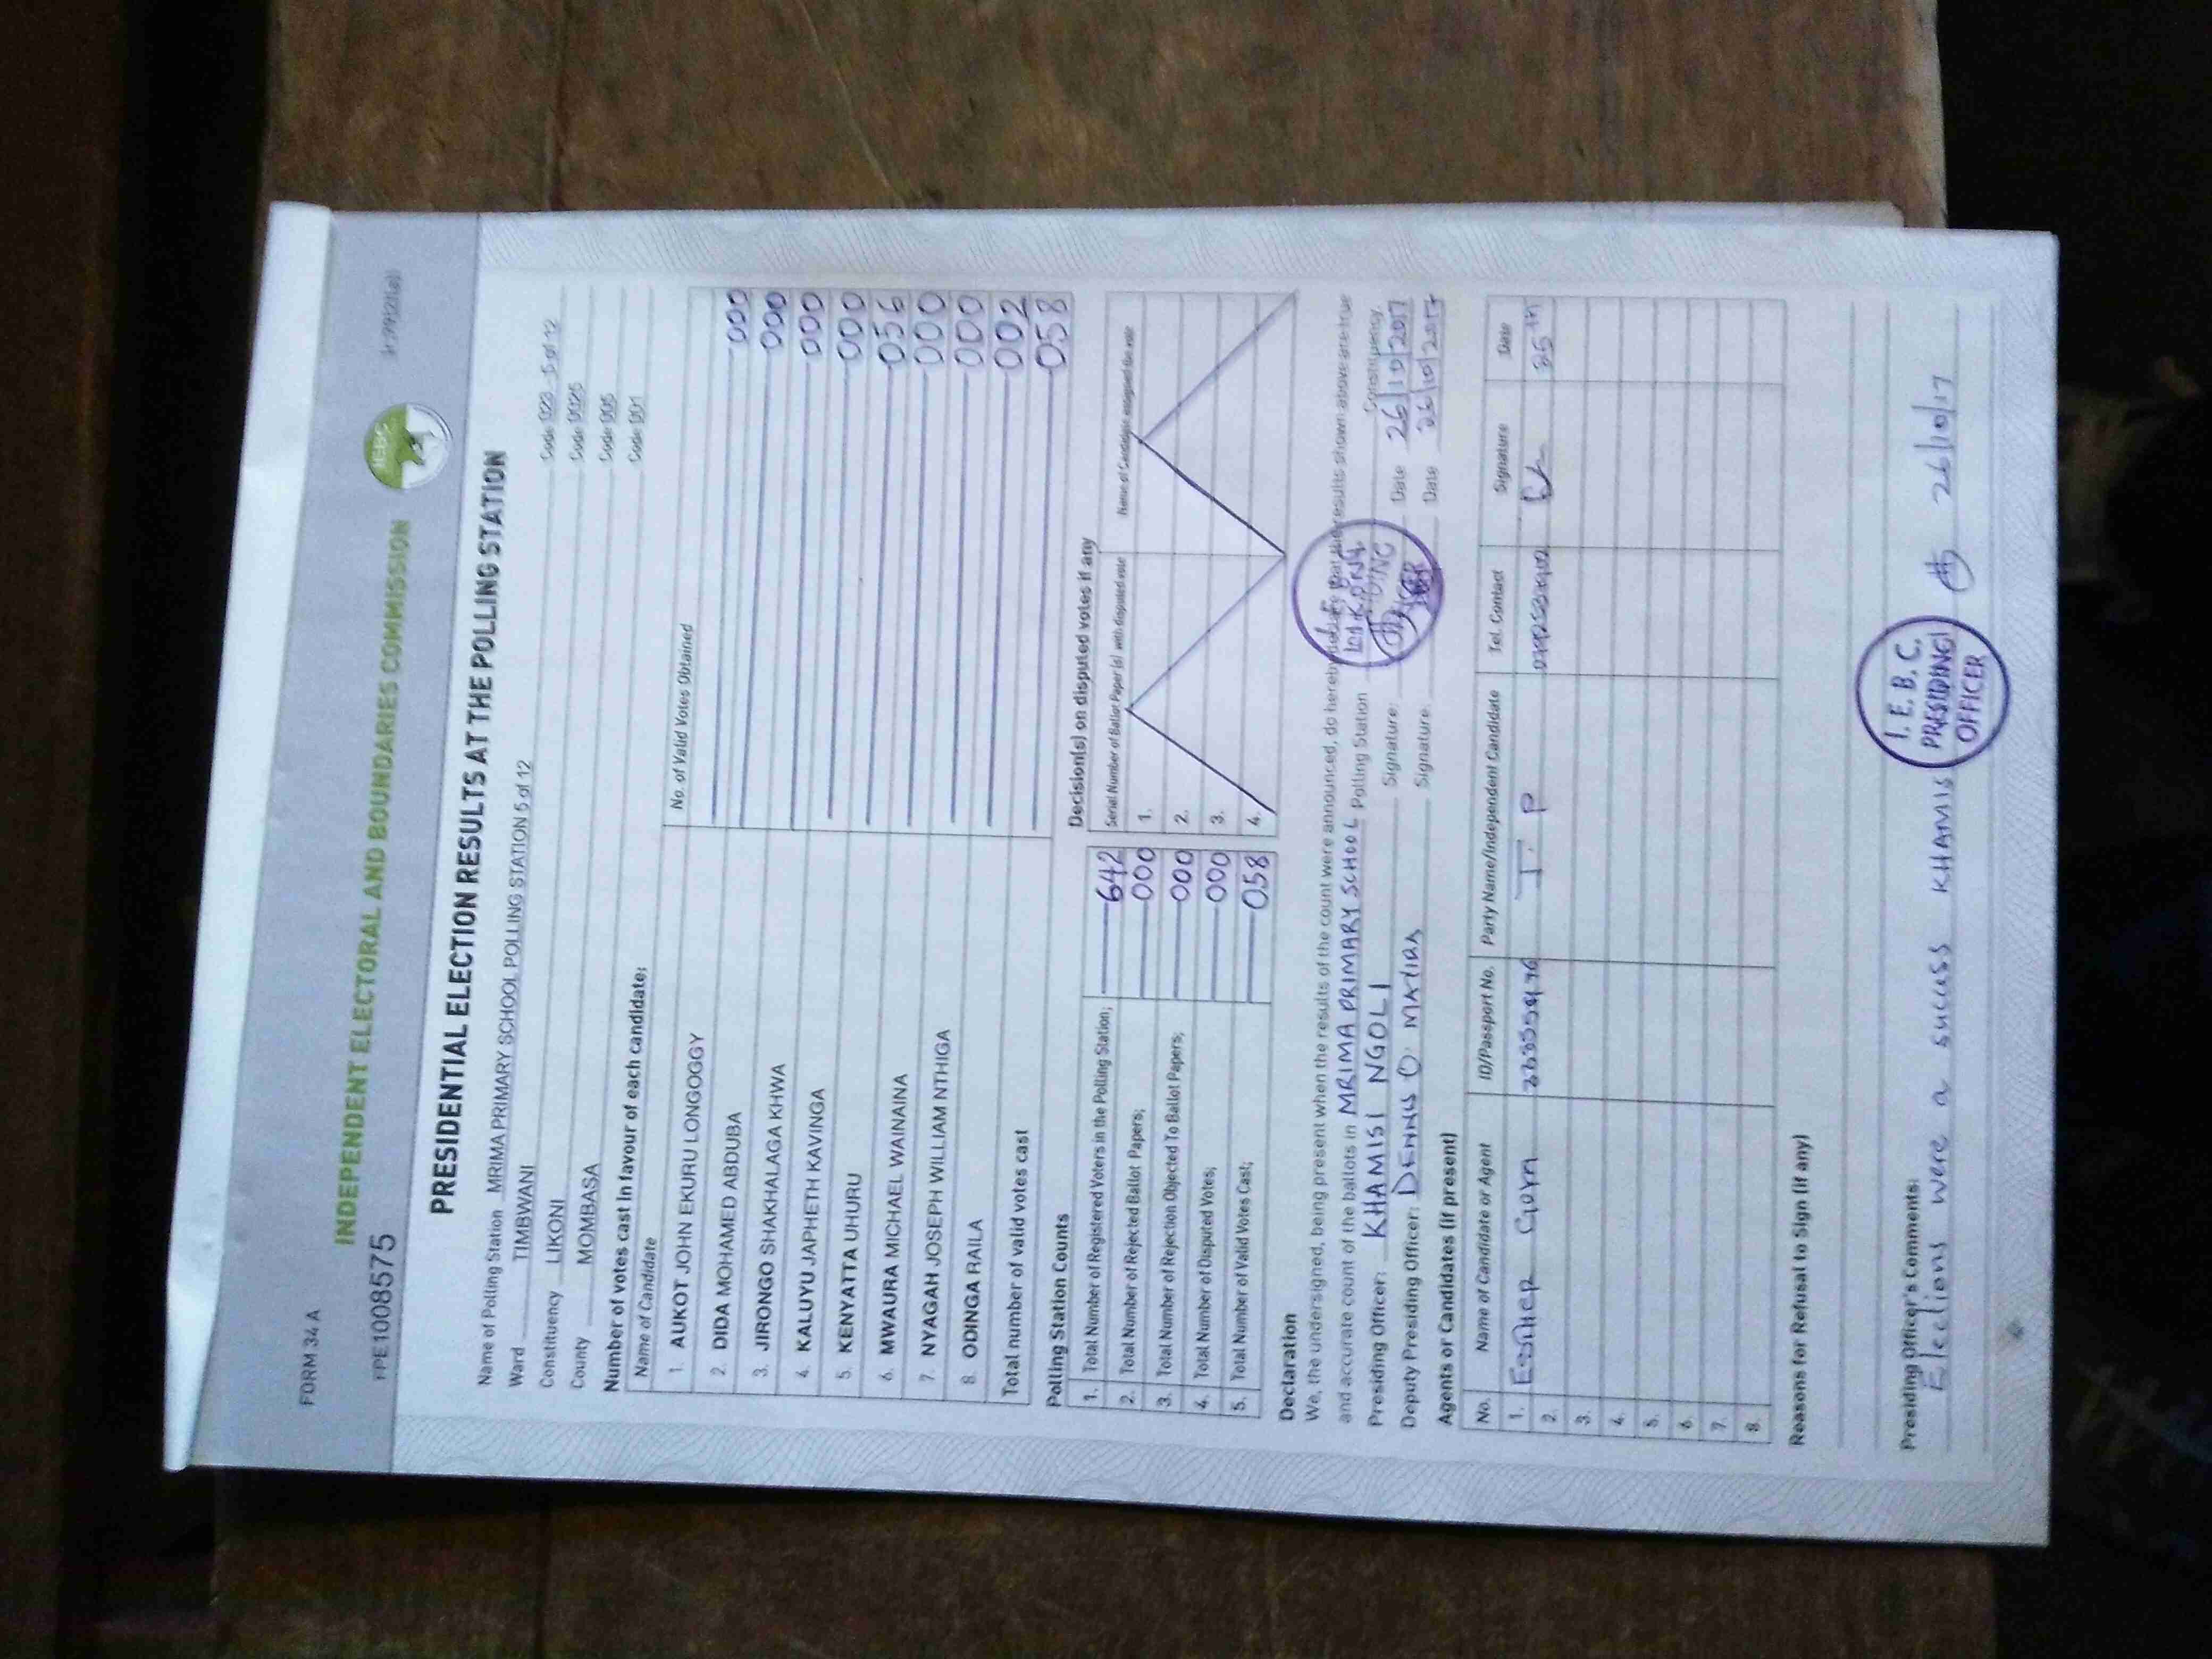 FORM 34 A
INDEPENDENT ELECTORAL AND BOUNDARIES COMMISSION
IEBC
PE1008575
PRESIDENTIAL ELECTION RESULTS AT THE POLLING STATION
Name of Polling Station MRIMA PRIMARY SCHOOL POLLING STATION 5 of 12 Code 023 5 of 12
Ward TIMBWANI Code 0025
Constituency LIKONI Code 005
County MOMBASA Code 001
Number of votes cast in favour of each candidate:
Name of Candidate No. of Valid Votes Obtained
1. AUKOT JOHN EKURU LONGOGGY 000
2. DIDA MOHAMED ABDUBA 000
3. JIRONGO SHAKHALAGA KHWA 000
4. KALUYU JAPHETH KAVINGA 000
5. KENYATTA UHURU 056
6. MWAURA MICHAEL WAINAINA 000
7. NYAGAH JOSEPH WILLIAM NTHIGA 000
8. ODINGA RAILA 002
Total number of valid votes cast 058
Polling Station Counts
1. Total Number of Registered Voters in the Polling Station; 642
2. Total Number of Rejected Ballot Papers; 000
3. Total Number of Rejection Objected To Ballot Papers; 000
4. Total Number of Disputed Votes; 000
5. Total Number of Valid Votes Cast; 058
Decision(s) on disputed votes if any
Serial Number of Ballot Paper (s) with disputed vote Name of Candidate assigned the vote
1.
2.
3.
4.
Declaration
We, the undersigned, being present when the results of the count were announced, do hereby declare that the results shown above are true
and accurate count of the ballots in MRIMA PRIMARY SCHOOL Polling Station LIKONI Constituency.
Presiding Officer: KHAMISI NGOLI Signature: Date 26/10/2017
Deputy Presiding Officer: DENNIS O. Signature: Date 26/10/2017
Agents or Candidates (if present)
No. Name of Candidate or Agent ID/Passport No. Party Name/Independent Candidate Tel. Contact Signature Date
1. J P
2.
3.
4.
5.
6.
7.
8.
Reasons for Refusal to Sign (if any)
Presiding Officer's Comments:
Elections were a success KHAMIS 26/10/17
I.E.B.C.
PRESIDING
OFFICER